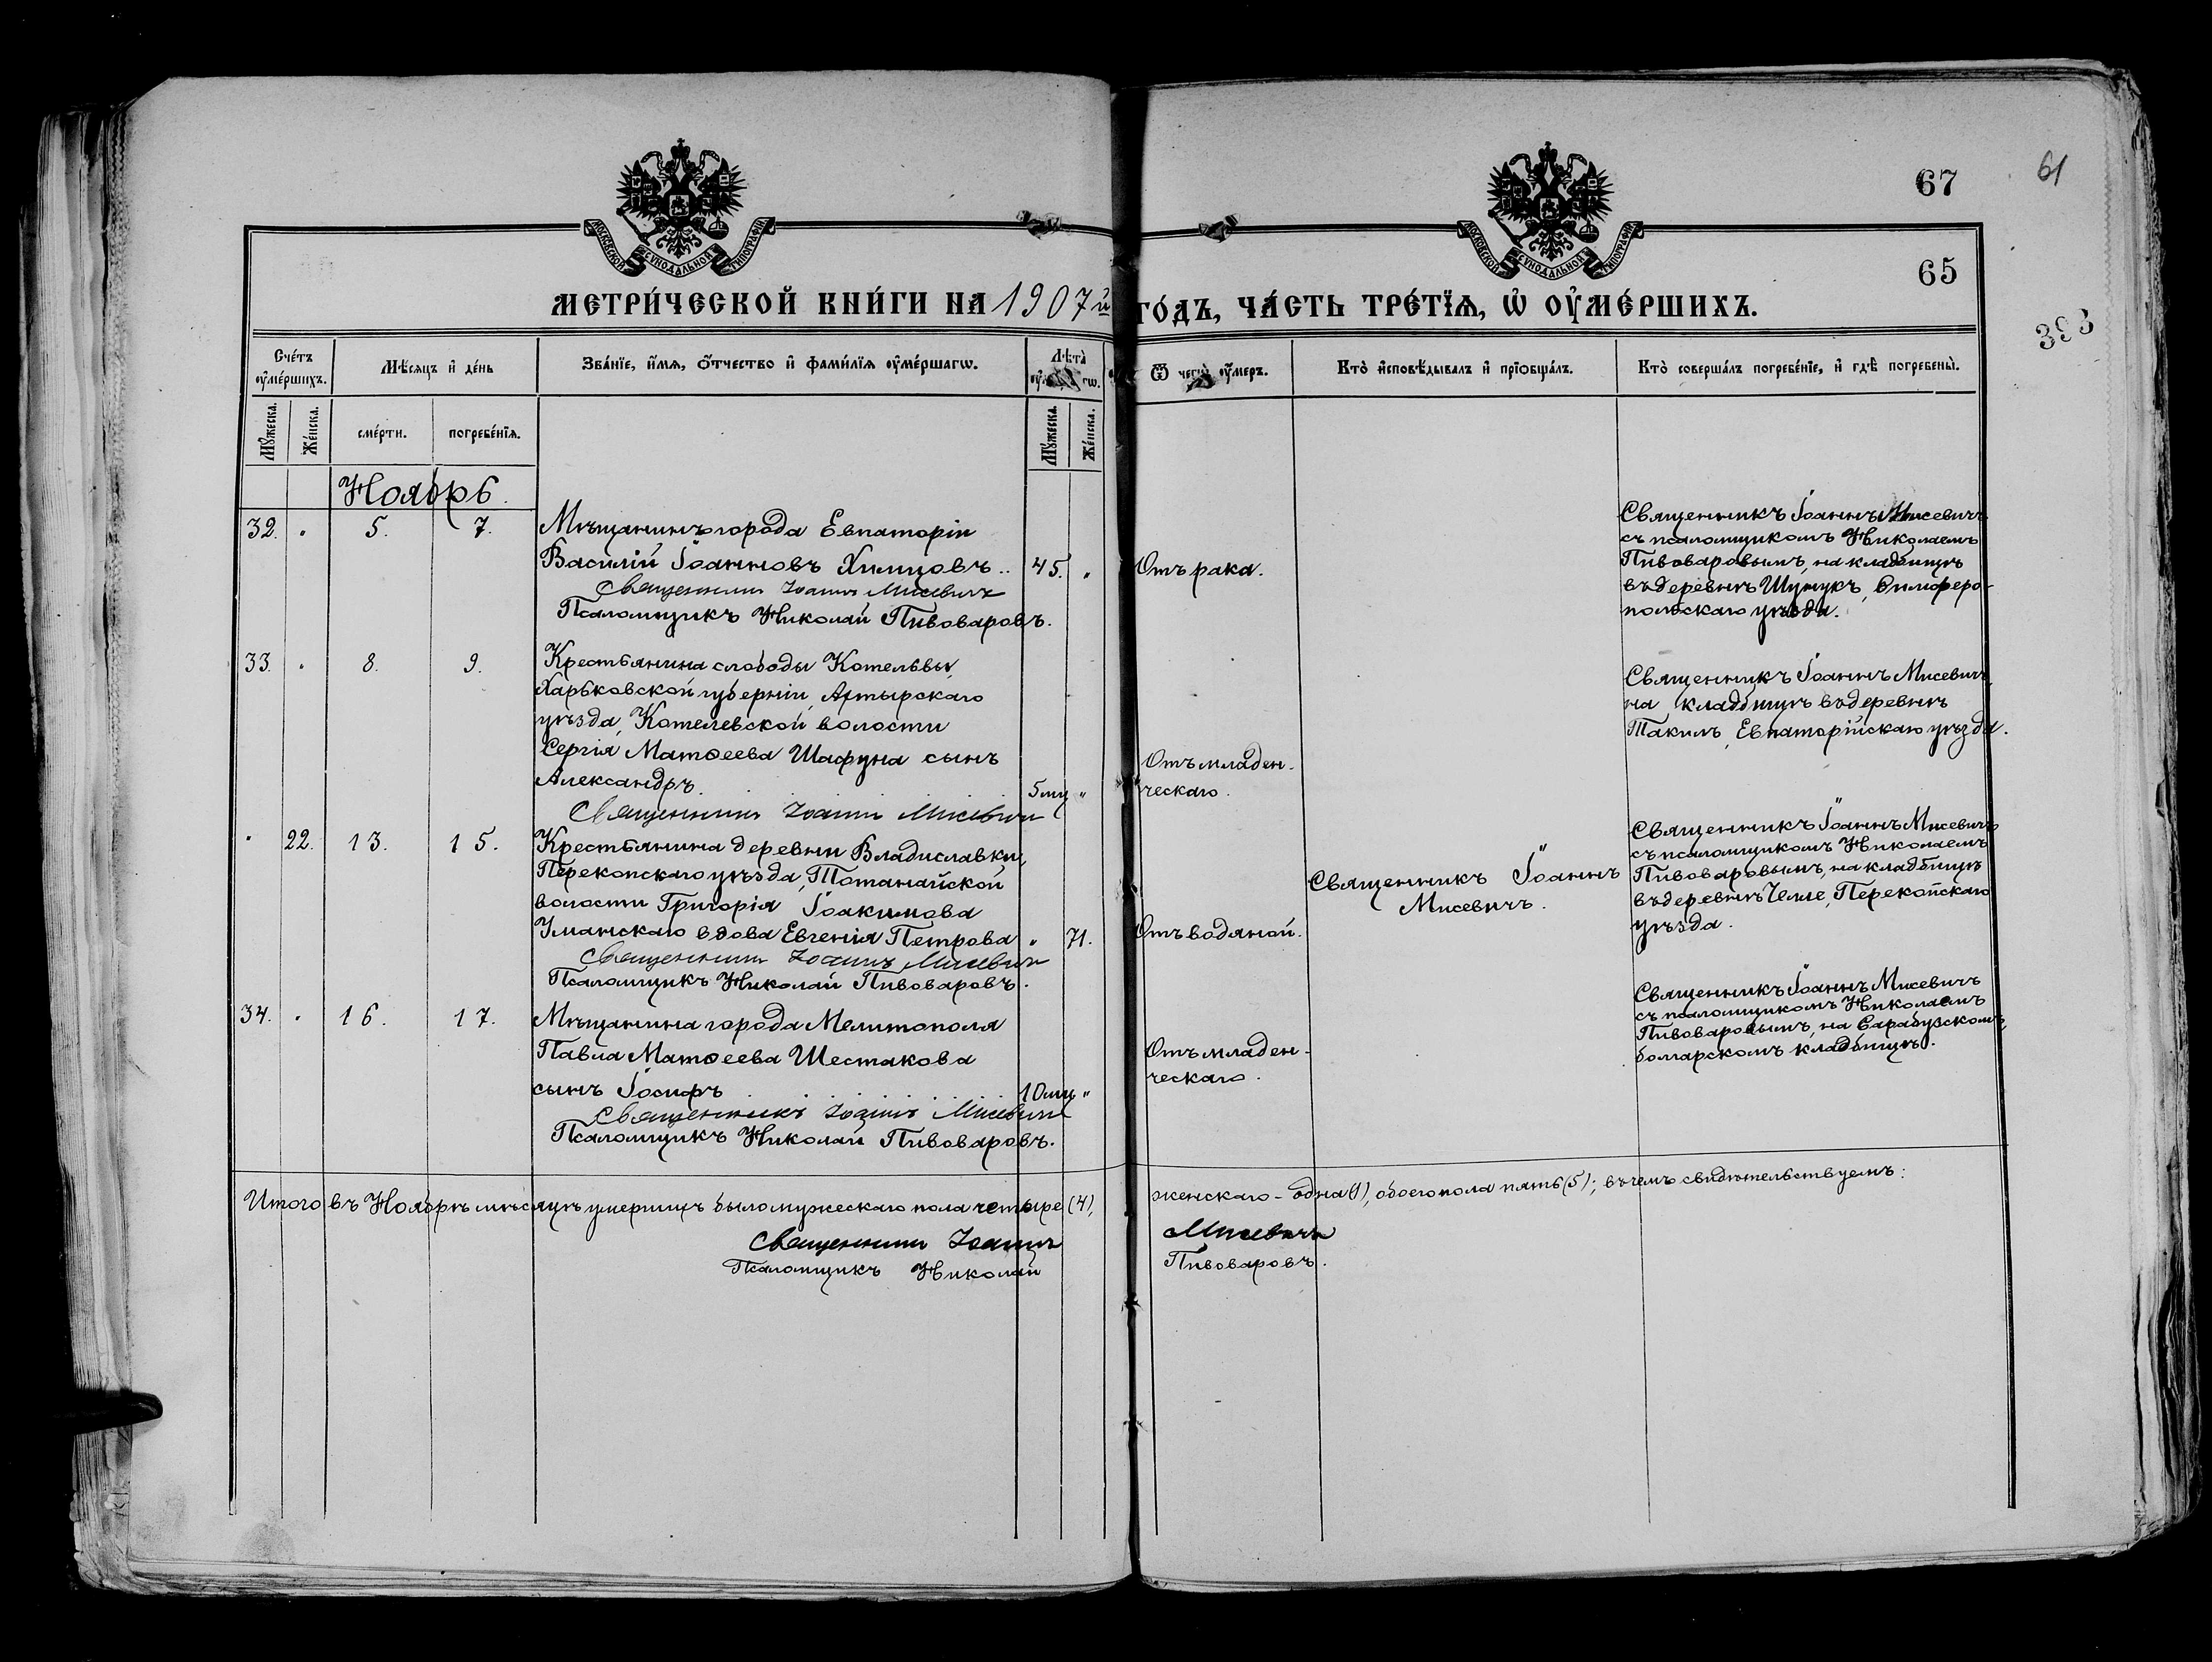 67
61
МОСКОВСКОЙ СѴНОДАЛЬНОЙ ТИПОГРАФІИ
МОСКОВСКОЙ СѴНОДАЛЬНОЙ ТИПОГРАФІИ
65
МЕТРИ́ЧЕСКОЙ КНИ́ГИ НА 1907й ГО́ДЪ, ЧА́СТЬ ТРЕ́ТЇѦ, Ѡ҆ ОУ҆МЕ́РШИХЪ.
393
Сче́тъ оу҆ме́ршихъ.
Мѣ́сяцъ и҆ де́нь
Зва́нїе, и҆́мѧ, ѻ҆́тчество и҆ фами́лїѧ оу҆ме́ршагѡ.
Лѣ́та
Ѿ чегѡ̀ оу҆́меръ.
Кто̀ и҆сповѣ́дывалъ и҆ прїѡбща́лъ.
Кто̀ соверша́лъ погребе́нїе, и҆ гдѣ̀ погребены̀.
Мꙋ́жеска.
Же́нска.
сме́рти.
погребе́нїѧ.
Мꙋ́жеска.
Же́нска.
Ноябрь.
32. " 5. 7.
Мѣщанинъ города Евпаторіи
Василій Іоанновъ Химцовъ .. 45. "
Священникъ Іоаннъ Мисевичъ
Псаломщикъ Николай Пивоваровъ.
Отъ рака.
Священникъ Іоаннъ Мисевичъ
съ псаломщикомъ Николаемъ
Пивоваровымъ, на кладбищѣ
въ деревнѣ Шунукъ, Симферо-
польскаго уѣзда.
33. " 8. 9.
Крестьянина слободы Котельвы,
Харьковской губерніи, Ахтырскаго
уѣзда, Котелевской волости
Сергія Матѳеева Шафуна сынъ
Александръ. 5 мц "
Священникъ Іоаннъ Мисевичъ
Отъ младен-
ческаго.
Священникъ Іоаннъ Мисевичъ,
на кладбищѣ въ деревнѣ
Такилъ, Евпаторійскаго уѣзда.
" 22. 13. 15.
Крестьянина деревни Владиславки,
Перекопскаго уѣзда, Тотанайской
волости Григорія Іоакимова
Уманскаго вдова Евгенія Петрова " 71.
Священникъ Іоаннъ Мисевичъ
Псаломщикъ Николай Пивоваровъ.
Отъ водяной.
Священникъ Іоаннъ
Мисевичъ.
Священникъ Іоаннъ Мисевичъ
съ псаломщикомъ Николаемъ
Пивоваровымъ, на кладбищѣ
въ деревнѣ Челле, Перекопскаго
уѣзда.
34. " 16. 17.
Мѣщанина города Мелитополя
Павла Матѳеева Шестакова
сынъ Іосифъ 10 мц "
Священникъ Іоаннъ Мисевичъ
Псаломщикъ Николай Пивоваровъ.
Отъ младен-
ческаго.
Священникъ Іоаннъ Мисевичъ
съ псаломщикомъ Николаемъ
Пивоваровымъ, на Сарабузскомъ,
болгарскомъ кладбищѣ.
Итого въ Ноябрѣ мѣсяцѣ умершихъ было мужескаго пола четыре (4), женскаго - одна (1), обоего пола пять (5); въ чемъ свидѣтельствуемъ:
Священникъ Іоаннъ Мисевичъ
Псаломщикъ Николай Пивоваровъ.